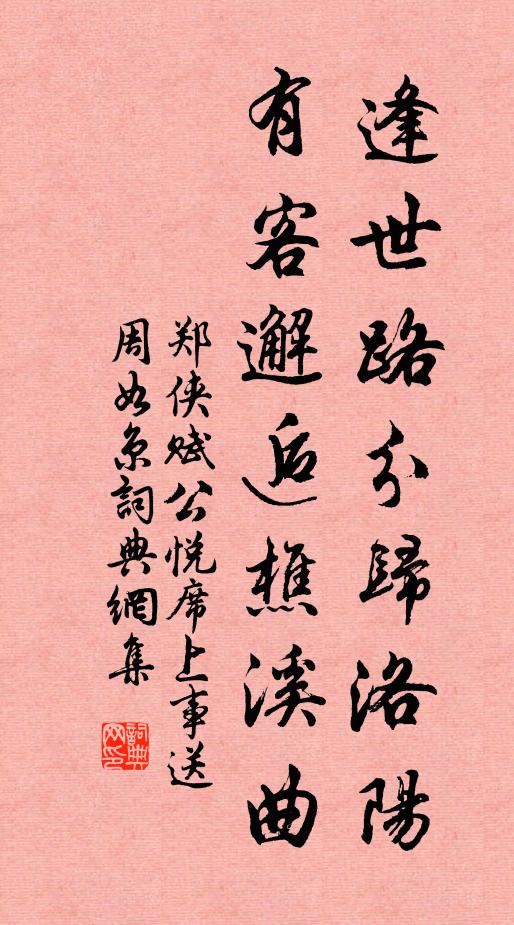 逢世路分歸洛陽
有客邂逅樵溪曲
郑侠赋公悦席上事送
周如京詞典網集
詞典网印